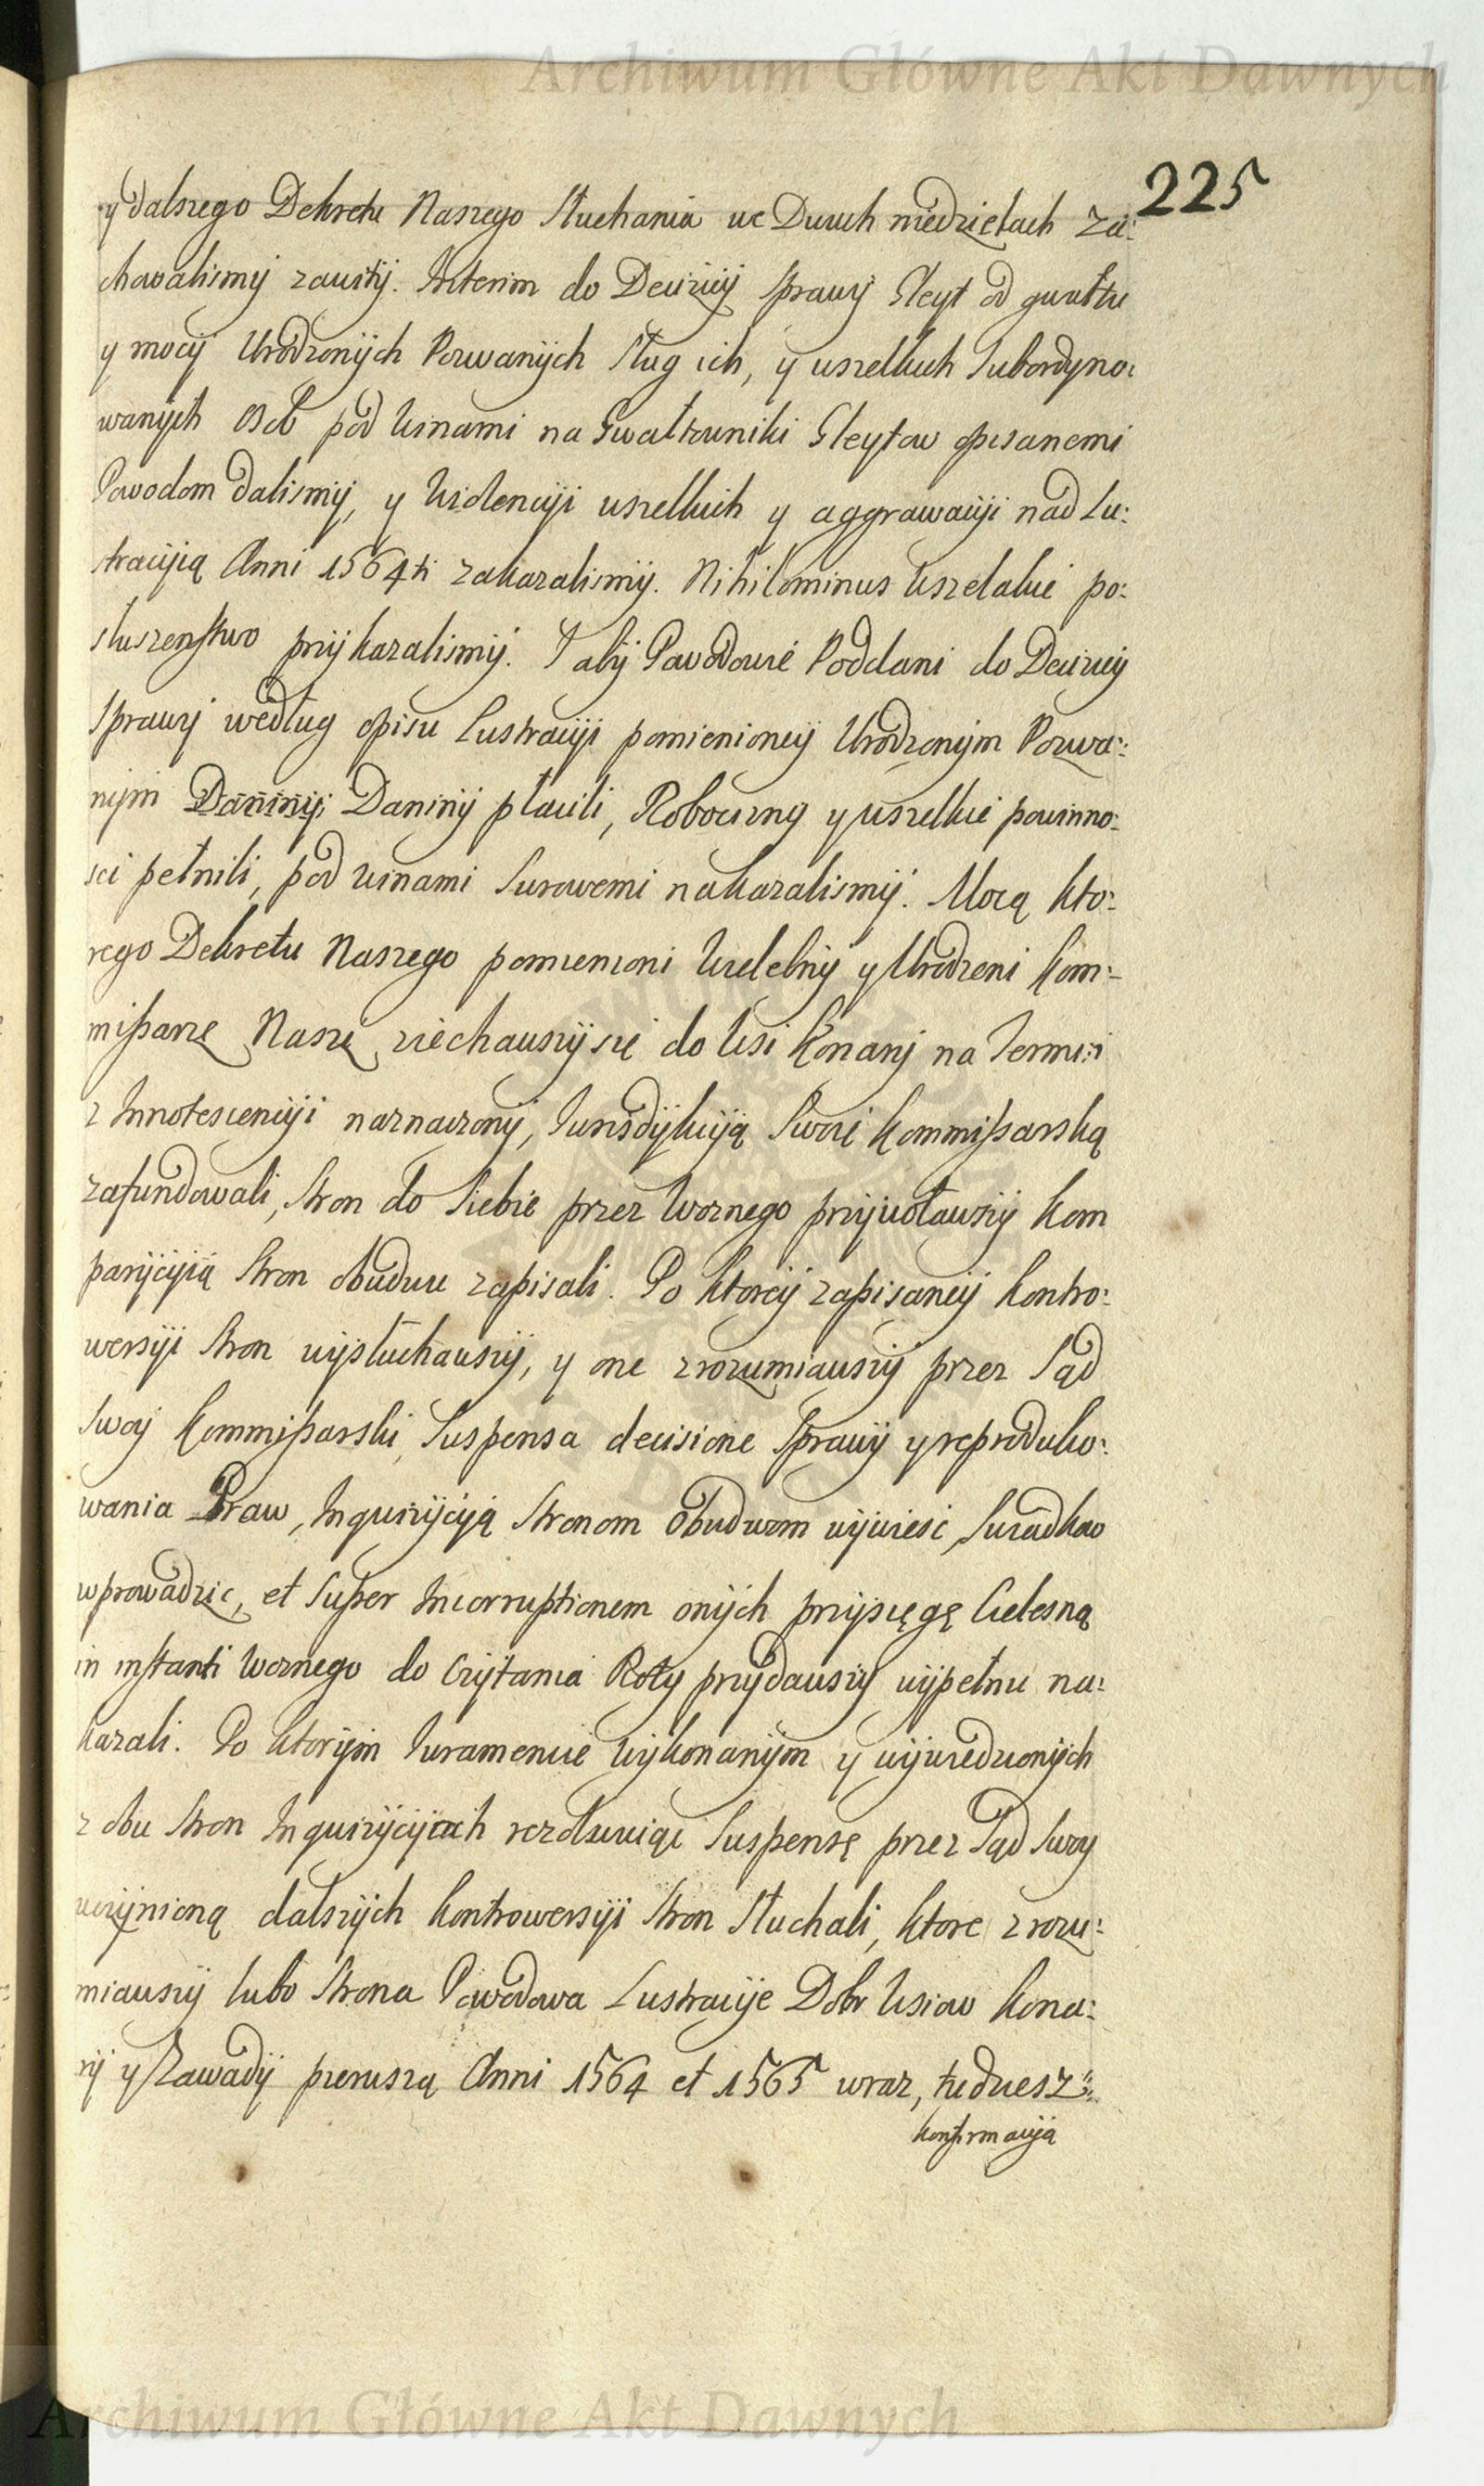 Archiwum Główne Akt Dawnych
225
y dalszego Dekretu Naszego słuchania we Dwuch niedzielach za:
chowalismÿ zawitÿ. Interim do Decizÿi Sprawÿ Gleyt od gwałtu
y mocÿ Urodzonÿch Pozwanÿch sług ich, y wszelkich Subordyno:
wanÿch osob pod winami na Gwałtowniki Gleytow opisanemi
Powodom dalismÿ, y Violencÿi wszelkich y aggrawacÿi nad Lu:
stracÿią Anni 1564ti zakazalismÿ. Nihilominus wszelakie po:
słuszenstwo przÿkazalismÿ. I abÿ Powodowie Poddani do Decizÿi
Sprawÿ według opisu Lustracÿi pomienioneÿ Urodzonÿm Pozwa:
nÿm Daninÿ Daninÿ płacili, Robocizny y wszelkie powinno:
sci pełnili, pod winami Surowemi nakazalismÿ. Mocą kto:
rego Dekretu Naszego pomienioni Wielebnÿ y Urodzeni kom:
mißarze Nasze ziechawszÿ się do Wsi Konarÿ na Termin
z Innotescencÿi naznaczonÿ, Jurisdÿkcÿą Swoię kommißarską
zafundowali, Stron do Siebie przez Woznego przÿwoławszÿ kom
parÿcÿią Stron obudwu zapisali. Po ktoreÿ zapisaneÿ kontro:
wersÿi Stron wÿsłuchawszÿ, y one zrozumiawszÿ przez Sąd
Swoy kommißarski, Suspensa decisione Sprawÿ y reproduko:
wania Praw, Inquizÿcÿą Stronom obudwom wÿwiesc, Swiadkow
wprowadzic, et Super Incorruptionem onÿch przÿsięgę Cielesną
in instanti Woznego do Czÿtania Roty przÿdawszÿ wÿpełnic na:
kazali. Po ktorÿm Juramencie wÿkonanÿm y wÿwiedzionÿch
z obu Stron Inquizÿcÿiach rezolwuiąc Suspensę przez Sąd Swoy
uczÿnioną dalszÿch kontrowersÿi Stron słuchali, ktore zrozu:
miawszÿ lubo Strona Powodowa Lustracÿe Dobr Wsiow Kona:
rÿ y Zawadÿ pierwszą Anni 1564 et 1565 wraz, tudziesz
konfirmacÿą
Archiwum Główne Akt Dawnych